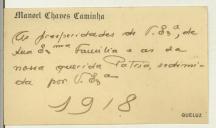 Manoel Chaves Caminha
As prosperidades de V. Exª, de
sua Exma familia e as da
nossa querida Patria, redimi-
da por V. Exª
1918
QUELUZ